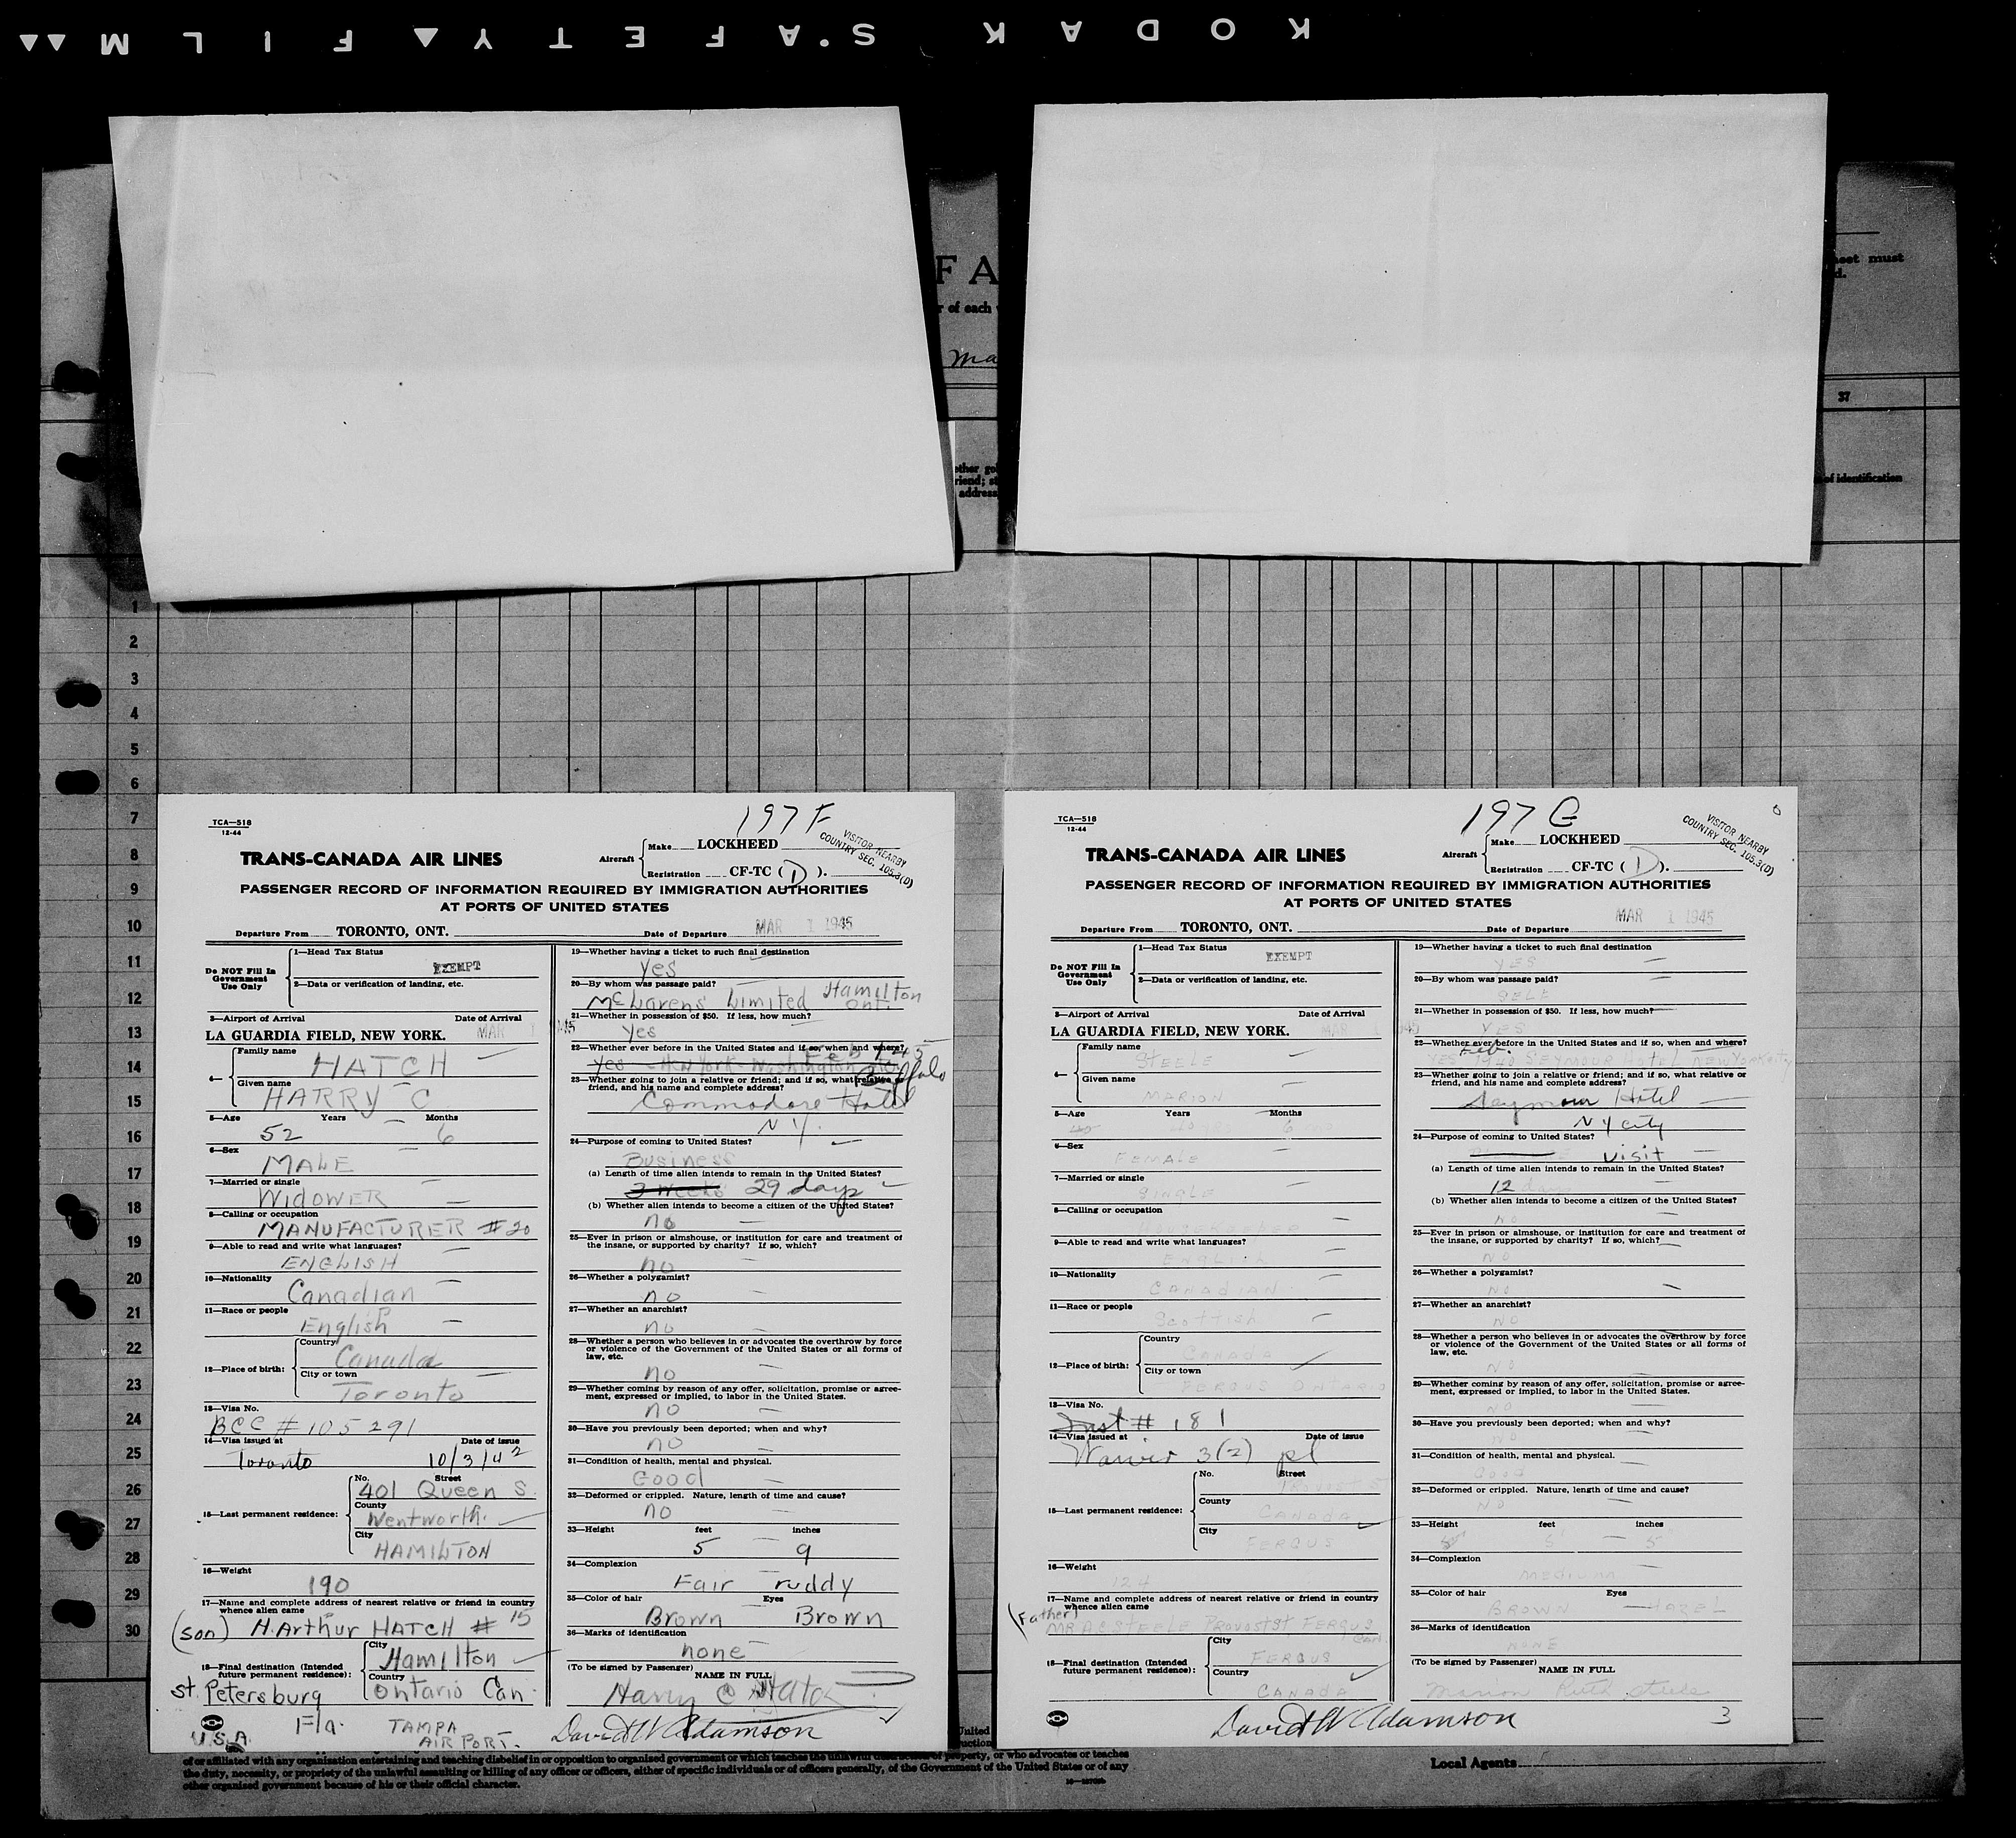 KODAK S'AFETY FILM
FA
r of each
ma
eet must
d.
37
ether go
riend; st
address
of identification
1
2
3
4
5
6
7
8
9
10
11
12
13
14
15
16
17
18
19
20
21
22
23
24
25
26
27
28
29
30
TCA—518
12-44
197 F
VISITOR NEARBY
COUNTRY SEC. 105.3(D)
TRANS-CANADA AIR LINES
Aircraft
Make LOCKHEED
Registration CF-TC ( D ).
PASSENGER RECORD OF INFORMATION REQUIRED BY IMMIGRATION AUTHORITIES
AT PORTS OF UNITED STATES
Departure From TORONTO, ONT. Date of Departure MAR 1 1945
Do NOT Fill In
Government
Use Only
1—Head Tax Status
EXEMPT
2—Data or verification of landing, etc.
3—Airport of Arrival Date of Arrival
LA GUARDIA FIELD, NEW YORK. MAR 1 1945
4—
Family name
HATCH
Given name
HARRY C
5—Age Years Months
52 6
6—Sex
MALE
7—Married or single
WIDOWER
8—Calling or occupation
MANUFACTURER #20
9—Able to read and write what languages?
ENGLISH
10—Nationality
Canadian
11—Race or people
English
12—Place of birth:
Country
Canada
City or town
Toronto
13—Visa No.
BCC # 105291
14—Visa issued at Date of issue
Toronto 10/3/42
15—Last permanent residence:
No. Street
401 Queen S.
County
Wentworth.
City
HAMILTON
16—Weight
190
17—Name and complete address of nearest relative or friend in country
whence alien came
(son) H. Arthur HATCH # 15
18—Final destination (Intended
future permanent residence):
City
Hamilton
Country
Ontario Can.
St. Petersburg
Fla.
U.S.A.
TAMPA
AIRPORT.
19—Whether having a ticket to such final destination
Yes
20—By whom was passage paid?
McLarens Limited Hamilton
Ont.
21—Whether in possession of $50. If less, how much?
Yes
22—Whether ever before in the United States and if so, when and where?
Feb 1945
Yes New York - Washington
Buffalo
23—Whether going to join a relative or friend; and if so, what relative or
friend, and his name and complete address?
Commodore Hotel
N Y.
24—Purpose of coming to United States?
Business
(a) Length of time alien intends to remain in the United States?
3 weeks 29 days
(b) Whether alien intends to become a citizen of the United States?
no
25—Ever in prison or almshouse, or institution for care and treatment of
the insane, or supported by charity? If so, which?
no
26—Whether a polygamist?
no
27—Whether an anarchist?
no
28—Whether a person who believes in or advocates the overthrow by force
or violence of the Government of the United States or all forms of
law, etc.
no
29—Whether coming by reason of any offer, solicitation, promise or agree-
ment, expressed or implied, to labor in the United States.
no
30—Have you previously been deported; when and why?
no
31—Condition of health, mental and physical.
Good
32—Deformed or crippled. Nature, length of time and cause?
no
33—Height feet inches
5 9
34—Complexion
Fair ruddy
35—Color of hair Eyes
Brown Brown
36—Marks of identification
none
(To be signed by Passenger)
NAME IN FULL
Harry C Hatch
David W Adamson
TCA—518
12-44
197 G
VISITOR NEARBY
COUNTRY SEC. 105.3(D)
TRANS-CANADA AIR LINES
Aircraft
Make LOCKHEED
Registration CF-TC ( D ).
PASSENGER RECORD OF INFORMATION REQUIRED BY IMMIGRATION AUTHORITIES
AT PORTS OF UNITED STATES
Departure From TORONTO, ONT. Date of Departure MAR 1 1945
Do NOT Fill In
Government
Use Only
1—Head Tax Status
EXEMPT
2—Data or verification of landing, etc.
3—Airport of Arrival Date of Arrival
LA GUARDIA FIELD, NEW YORK. MAR 1 1945
4—
Family name
STEELE
Given name
MARION
5—Age Years Months
40 yrs 6 mo
6—Sex
FEMALE
7—Married or single
SINGLE
8—Calling or occupation
HOUSEKEEPER
9—Able to read and write what languages?
ENGLISH
10—Nationality
CANADIAN
11—Race or people
Scottish
12—Place of birth:
Country
CANADA
City or town
FERGUS ONTARIO
13—Visa No.
Inst # 181
14—Visa issued at Date of issue
Waiver 3(2) pl
15—Last permanent residence:
No. Street
Provost
County
CANADA
City
FERGUS
16—Weight
124
17—Name and complete address of nearest relative or friend in country
whence alien came
(Father)
MR A.C. STEELE PROVOST ST FERGUS
Can.
18—Final destination (Intended
future permanent residence):
City
FERGUS
Country
CANADA
19—Whether having a ticket to such final destination
YES
20—By whom was passage paid?
SELF
21—Whether in possession of $50. If less, how much?
YES
22—Whether ever before in the United States and if so, when and where?
Feb.
YES 1940 SEYMOUR HOTEL NEW YORK CITY
23—Whether going to join a relative or friend; and if so, what relative or
friend, and his name and complete address?
Seymour Hotel
N Y City
24—Purpose of coming to United States?
visit
(a) Length of time alien intends to remain in the United States?
12 days
(b) Whether alien intends to become a citizen of the United States?
NO
25—Ever in prison or almshouse, or institution for care and treatment of
the insane, or supported by charity? If so, which?
NO
26—Whether a polygamist?
NO
27—Whether an anarchist?
NO
28—Whether a person who believes in or advocates the overthrow by force
or violence of the Government of the United States or all forms of
law, etc.
NO
29—Whether coming by reason of any offer, solicitation, promise or agree-
ment, expressed or implied, to labor in the United States.
NO
30—Have you previously been deported; when and why?
NO
31—Condition of health, mental and physical.
Good
32—Deformed or crippled. Nature, length of time and cause?
NO
33—Height feet inches
5 5
34—Complexion
MEDIUM
35—Color of hair Eyes
BROWN HAZEL
36—Marks of identification
NONE
(To be signed by Passenger)
NAME IN FULL
Marion Ruth Steele
David W Adamson
3
United
uction
of or affiliated with any organisation entertaining and teaching disbelief in or opposition to organised government or which teaches the unlawful destruction of property, or who advocates or teaches
the duty, necessity, or propriety of the unlawful assaulting or killing of any officer or officers, either of specific individuals or of officers generally, of the Government of the United States or of any
other organised government because of his or their official character.
Local Agents